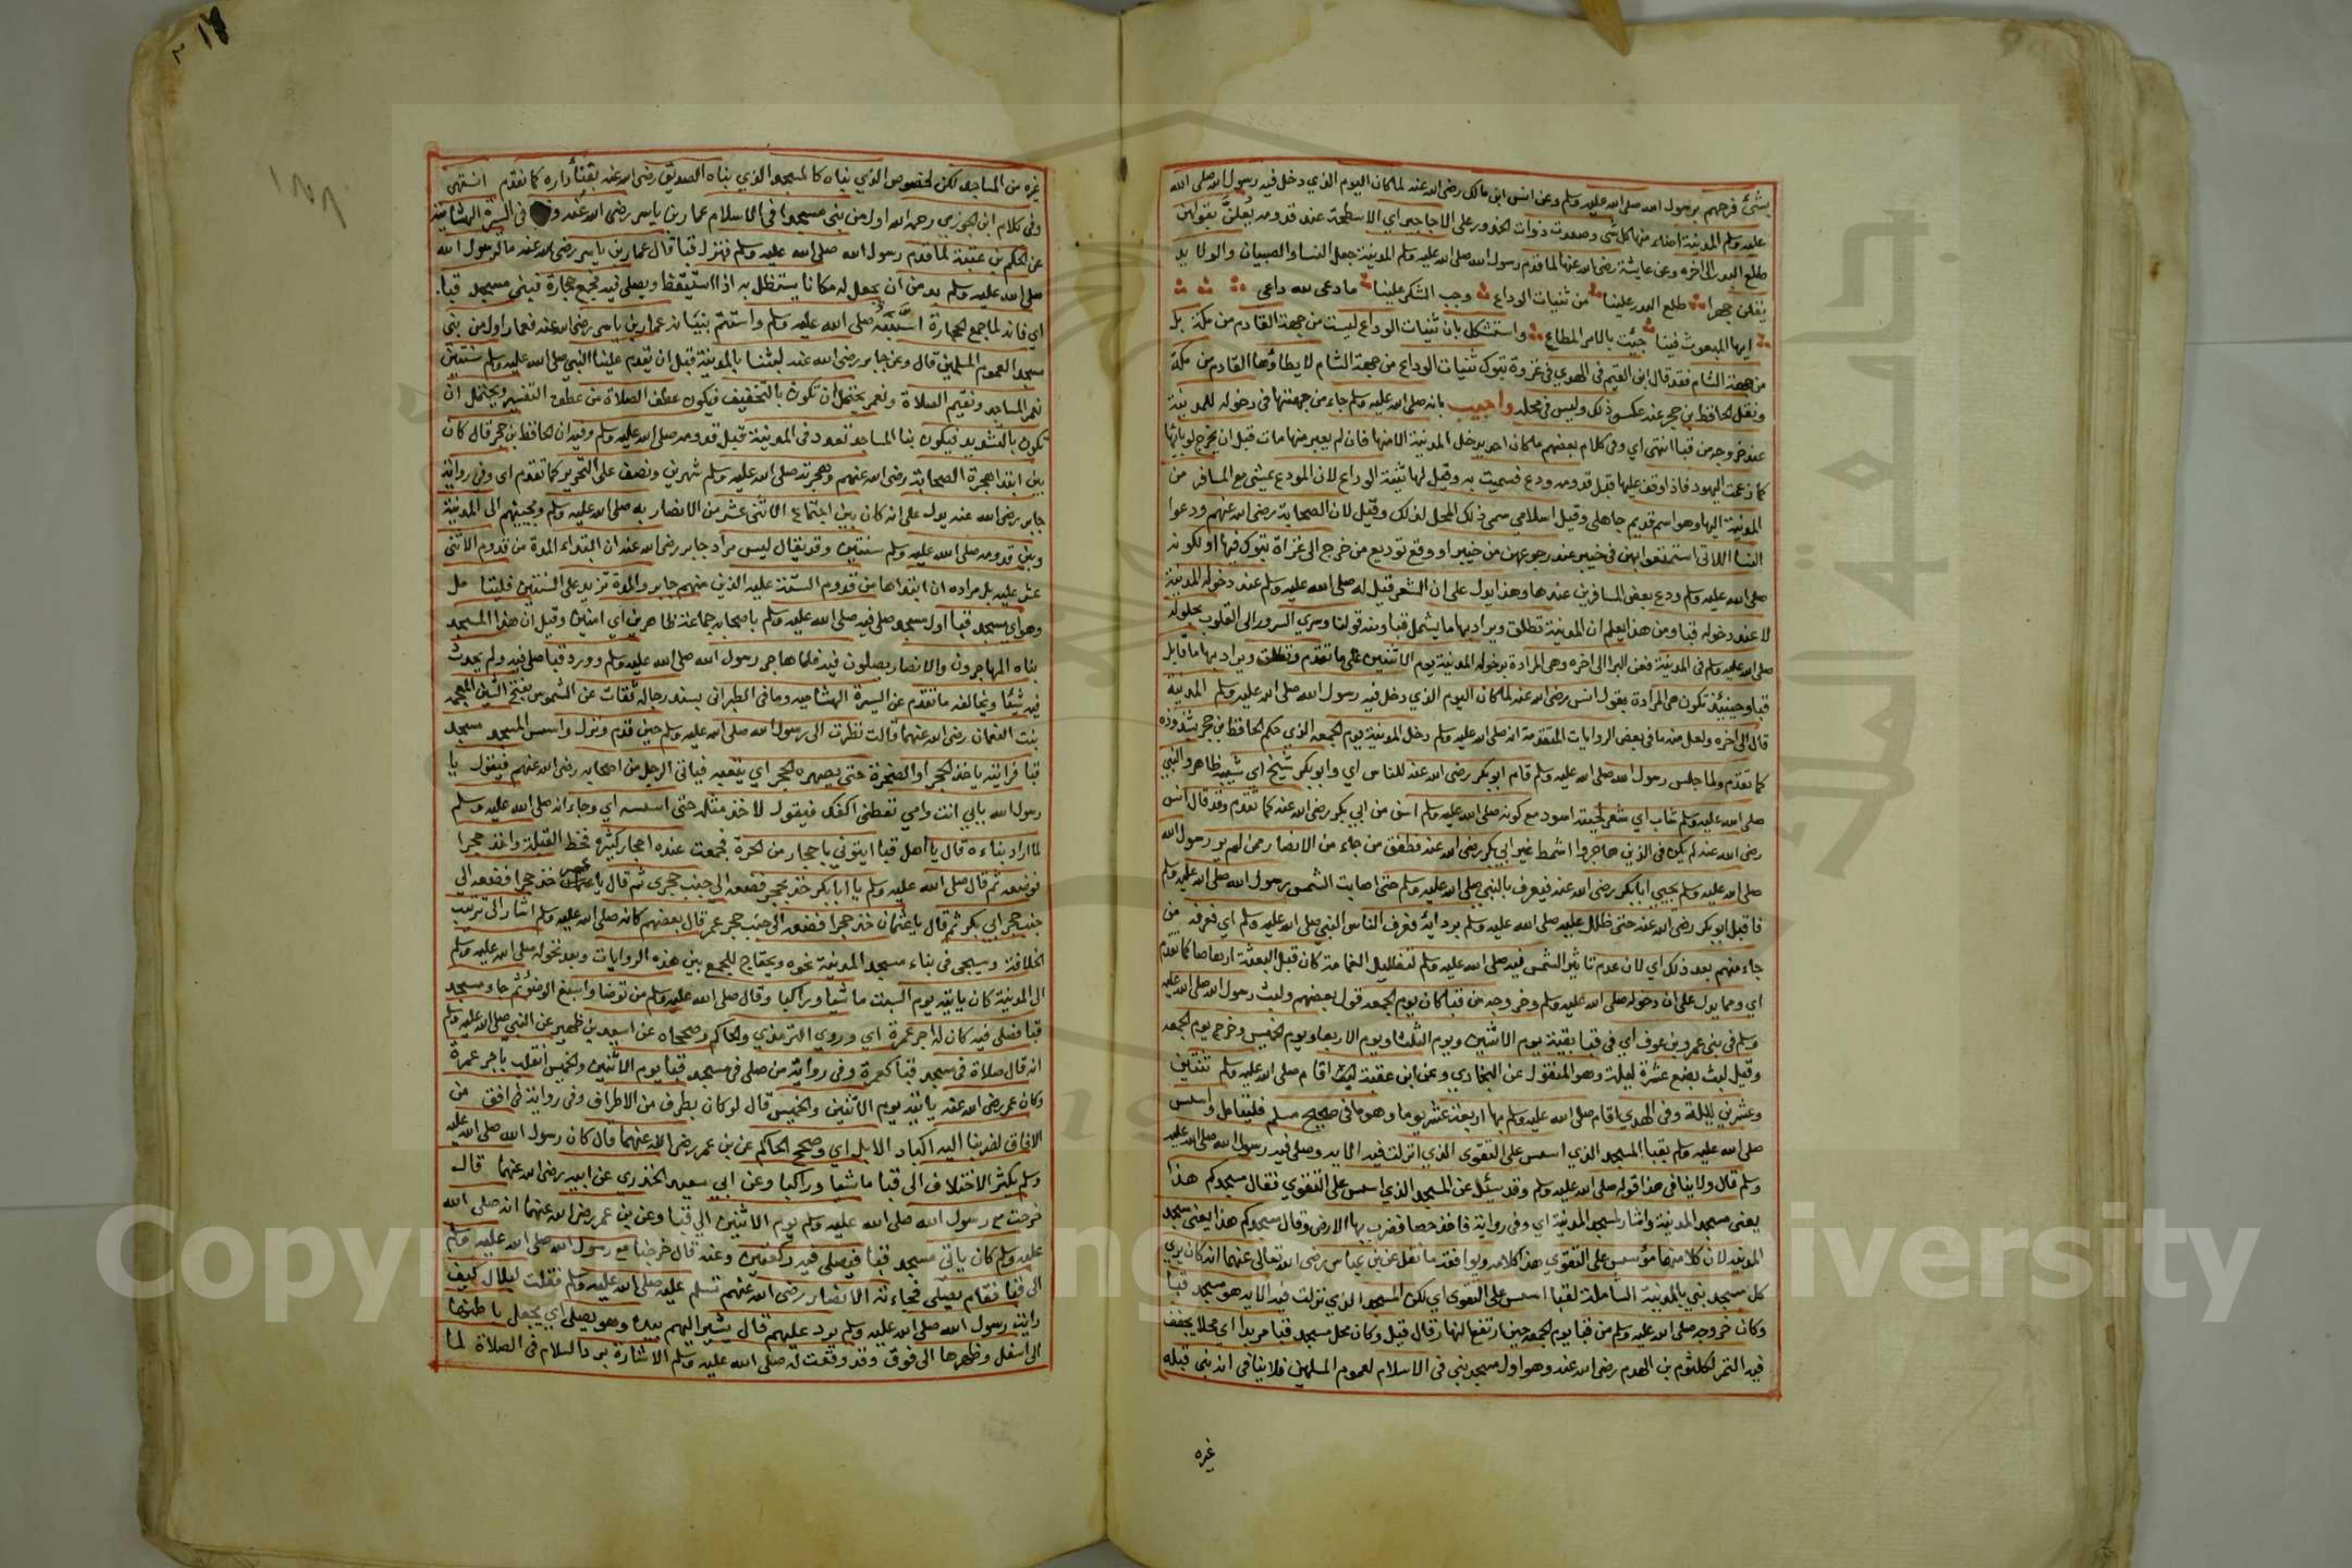 بشئ فرحهم برسول الله صلى الله عليه وسلم وعن انس ابن مالك رضى الله عنه لما كان اليوم الذي دخل فيه رسول الله صلى الله
عليه وسلم المدينة اضاء منها كل شى وصعدت ذوات الخدور على الاجاجير اي الاسطحة عند قدومه يعلن بقولهن
طلع البدر الى اخره وعن عايشة رضى الله عنها لما قدم رسول الله صلى الله عليه وسلم المدينة جعل النسا والصبيان والولايد
يقلن جهرا طلع البدر علينا من ثنيات الوداع وجب الشكر علينا ما دعى لله داعى
ايها المبعوث فينا جئت بالامر المطاع واستشكل بان ثنيات الوداع ليست من جهة القادم من مكة بل
من جهة الشام فقد قال ابن القيم فى الهدي فى غزوة تبوك ثنيات الوداع من جهة الشام لا يطاؤها القادم من مكة
ونقل الحافظ بن حجر عنه عكس ذلك وليس فى محله واجيب بانه صلى الله عليه وسلم جاء من جهتها فى دخوله للمدينة
عند خروجه من قبا انتهى اي وفى كلام بعضهم ما كان احد يدخل المدينة الا منها فان لم يعبر منها مات قبل ان يخرج لوبائها
كما زعمت اليهود فاذا وقف عليها قيل قد ودع فسميت به وقيل لها ثنية الوداع لان المودع يمشى مع المسافر من
المدينة اليها وهو اسم قديم جاهلى وقيل اسلامي سمى ذلك المحل لذلك وقيل لان الصحابة رضى الله عنهم ودعوا
النسا اللاتى استمتعوا بهن فى خيبر عند رجوعهن من خيبر او وقع توديع من خرج الى غزاة تبوك فيها او لكونه
صلى الله عليه وسلم ودع بعض المسافرين عندها وهذا يدل على ان الشعر قيل له صلى الله عليه وسلم عند دخوله المدينة
لا عند دخوله قبا ومن هذا يعلم ان المدينة تطلق ويراد بها ما يشمل قبا ومنه قولنا وسري السرور الى القلوب بحلوله
صلى الله عليه وسلم فى المدينة فعن البرا الى اخره وهى المرادة بدخوله المدينة يوم الاثنين على ما تقدم وتطلق ويراد بها ما قابل
قبا وحينئذ تكون هى المرادة بقول انس رضى الله عنه لما كان اليوم الذي دخل فيه رسول الله صلى الله عليه وسلم المدينة
قال الى اخره ولعل منه ما فى بعض الروايات المتقدمة انه صلى الله عليه وسلم دخل المدينة يوم الجمعة الذي حكم الحافظ بن حجر بشذوذه
كما تقدم ولما جلس رسول الله صلى الله عليه وسلم قام ابو بكر رضى الله عنه للناس اي وابو بكر شيخ اي شيبه ظاهر والنبي
صلى الله عليه وسلم شاب اي شعر لحيته اسود مع كونه صلى الله عليه وسلم اسن من ابي بكر رضى الله عنه كما تقدم وقد قال انس
رضى الله عنه لم يكن فى الذين هاجروا اشمط غير ابي بكر رضى الله عنه فطفق من جاء من الانصار ممن لم ير رسول الله
صلى الله عليه وسلم يحيي ابا بكر رضى الله عنه فيعرف بالنبي صلى الله عليه وسلم حتى اصابت الشمس رسول الله صلى الله عليه وسلم
فاقبل ابو بكر رضى الله عنه حتى ظلل عليه صلى الله عليه وسلم بردائه فعرف الناس النبي صلى الله عليه وسلم اي فعرفه من
جاء منهم بعد ذلك اي لان عدم تاثير الشمس فيه صلى الله عليه وسلم لتظليل الغمامة كان قبل البعثة ارهاصا كما تقدم
اي ومما يدل على ان دخوله صلى الله عليه وسلم وخروجه من قبا كان يوم الجمعة قول بعضهم ولبث رسول الله صلى الله عليه
وسلم فى بنى عمرو بن عوف اي فى قبا بقية يوم الاثنين ويوم الثلاثا ويوم الاربعا ويوم الخميس وخرج يوم الجمعة
وقيل لبث بضع عشرة ليلة وهو المنقول عن البخاري وعن ابن عقبة اقام صلى الله عليه وسلم ثنتين
وعشرين ليلة وفى الهدي اقام صلى الله عليه وسلم بها اربعة عشر يوما وهو ما فى صحيح مسلم فليتامل واسس
صلى الله عليه وسلم بقبا المسجد الذي اسس على التقوى الذي انزلت فيه الاية وصلى فيه رسول الله صلى الله عليه
وسلم قال ولا ينافى هذا قوله صلى الله عليه وسلم وقد سئل عن المسجد الذي اسس على التقوى فقال مسجدكم هذا
يعنى مسجد المدينة واشار لمسجد المدينة اي وفى رواية فاخذ حصا فضرب بها الارض وقال مسجدكم هذا يعنى مسجد
المدينة لان كلا منهما مؤسس على التقوي هذا كلامه ويوافقه ما نقل عن بن عباس رضى الله تعالى عنهما انه كان يري
كل مسجد بنى بالمدينة الشاملة لقبا اسس على التقوى اي لكن المسجد الذي نزلت فيه الاية هو مسجد قبا
وكان خروجه صلى الله عليه وسلم من قبا يوم الجمعة حين ارتفع النهار قال قيل وكان محل مسجد قبا مربدا اي محلا يجفف
فيه التمر لكلثوم بن الهدم رضى الله عنه وهو اول مسجد بنى فى الاسلام لعموم المسلمين فلا ينافى انه بنى قبله
غيره
غيره من المساجد لكن لخصوص الذي بناه كالمسجد الذي بناه الصديق رضى الله عنه بفناء داره كما تقدم انتهى
وفى كلام ابن الجوزي رحمه الله اول من بنى مسجدا فى الاسلام عمار بن ياسر رضى الله عنه فى السيرة الهشامية
عن الحكم بن عتيبة لما قدم رسول الله صلى الله عليه وسلم فنزل قبا قال عمار بن ياسر رضى الله عنه ما لرسول الله
صلى الله عليه وسلم بد من ان يجعل له مكانا يستظل به اذا استيقظ ويصلى فيه فجمع حجارة فبنى مسجد قبا
اي فانه لما جمع الحجارة اسسه صلى الله عليه وسلم واستتم بنيانه عمار بن ياسر رضى الله عنه فعمار اول من بنى
مسجدا لعموم المسلمين قال وعن جابر رضى الله عنه لبثنا بالمدينة قبل ان يقدم علينا النبي صلى الله عليه وسلم سنتين
نعمر المساجد ونقيم الصلاة ونعمر يحتمل ان تكون بالتخفيف فيكون عطف الصلاة من عطف التفسير ويحتمل ان
تكون بالتشديد فيكون بنا المساجد تعدد فى المدينة قبل قدومه صلى الله عليه وسلم وفيه ان الحافظ بن حجر قال كان
بين ابتدا هجرة الصحابة رضى الله عنهم وهجرته صلى الله عليه وسلم شهرين ونصف على التحرير كما تقدم اي وفى رواية
جابر رضى الله عنه يدل على انه كان بين اجتماع الاثنى عشر من الانصار به صلى الله عليه وسلم ومجيئهم الى المدينة
وبين قدومه صلى الله عليه وسلم سنتين وقد يقال ليس مراد جابر رضى الله عنه ان ابتداء المدة من قدوم الاثنى
عشر عليه بل مراده ان ابتداها من قدوم الستة عليه الذين منهم جابر والمدة تزيد على السنتين فليتامل
وهو اي مسجد قبا اول مسجد صلى فيه صلى الله عليه وسلم باصحابه جماعة ظاهرين اي امنين وقيل ان هذا المسجد
بناه المهاجرون والانصار يصلون فيه فلما هاجر رسول الله صلى الله عليه وسلم وورد قبا صلى فيه ولم يحدث
فيه شيئا ويخالفه ما تقدم عن السيرة الهشامية وما فى الطبرانى بسند رجاله ثقات عن الشموس بفتح الشين المعجمة
بنت النعمان رضى الله عنهما قالت نظرت الى رسول الله صلى الله عليه وسلم حين قدم ونزل واسس المسجد مسجد
قبا فرايته ياخذ الحجر او الصخرة حتى يصهره الحجر اي يتعبه فياتى الرجل من اصحابه رضى الله عنهم فيقول يا
رسول الله بابي انت وامي تعطنى اكفك فيقول لا خذ مثله حتى اسسه اي وجاء انه صلى الله عليه وسلم
لما اراد بناءه قال يا اهل قبا ايتونى باحجار من الحرة فجمعت عنده احجار كثيرة فخط القبلة واخذ حجرا
فوضعه ثم قال صلى الله عليه وسلم يا ابا بكر خذ بحجر فضعه الى جنب حجري ثم قال يا عمر خذ حجرا فضعه الى
جنب حجر ابي بكر ثم قال يا عثمان خذ حجرا فضعه الى جنب حجر عمر قال بعضهم كانه صلى الله عليه وسلم اشار الى ترتيب
الخلافة وسيجى فى بناء مسجد المدينة نحوه ويحتاج للجمع بين هذه الروايات وبعد تحوله صلى الله عليه وسلم
الى المدينة كان ياتيه يوم السبت ماشيا وراكبا وقال صلى الله عليه وسلم من توضا واسبغ الوضوء ثم جاء مسجد
قبا فصلى فيه كان له اجر عمرة اي وروي الترمذي والحاكم وصححاه عن اسيد بن ظهير عن النبي صلى الله عليه وسلم
انه قال صلاة فى مسجد قبا كعمرة وفى رواية من صلى فى مسجد قبا يوم الاثنين والخميس انقلب باجر عمرة
وكان عمر رضى الله عنه ياتيه يوم الاثنين والخميس قال لو كان بطرف من الاطراف وفى رواية فى افق من
الافاق لضربنا اليه اكباد الابل اي وصحح الحاكم عن بن عمر رضى الله عنهما قال كان رسول الله صلى الله عليه
وسلم يكثر الاختلاف الى قبا ماشيا وراكبا وعن ابي سعيد الخدري عن ابيه رضى الله عنهما قال
خرجت مع رسول الله صلى الله عليه وسلم يوم الاثنين الى قبا وعن بن عمر رضى الله عنهما انه صلى الله
عليه وسلم كان ياتى مسجد قبا فيصلى فيه ركعتين وعنه قال خرجنا مع رسول الله صلى الله عليه وسلم
الى قبا فقام يصلى فجاءته الانصار رضى الله عنهم تسلم عليه صلى الله عليه وسلم فقلت لبلال كيف
رايت رسول الله صلى الله عليه وسلم يرد عليهم قال يشير اليهم بيده وهو يصلى اي يجعل باطنها
الى اسفل وظهرها الى فوق وقد وقعت له صلى الله عليه وسلم الاشارة برد السلام فى الصلاة لما